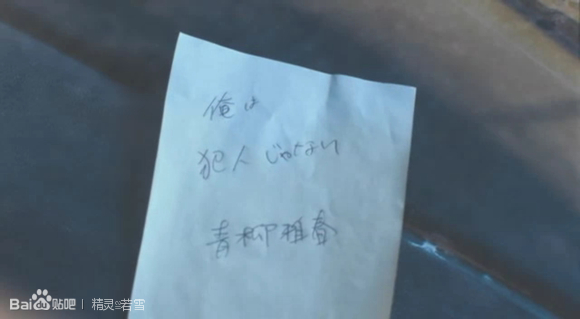 俺は
犯人じゃない
青柳雅春
Bai貼吧 | 精灵の若雪